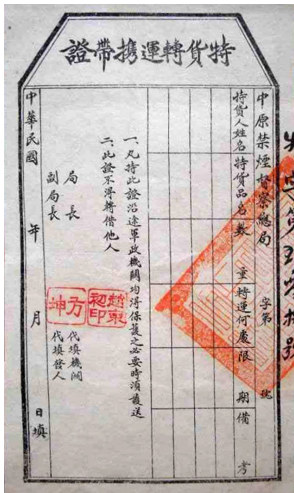 特貨轉運携帶證
中原禁煙督察總局 字第 號
持貨人姓名 特貨品名 數量 轉運何處 限期 備考
一、凡持此證沿途軍政機關均得保護之必要時須護送
二、此證不得轉借他人
局長
副局長
方坤
趙東初印
代填機關
代填發人
中華民國 年 月 日填